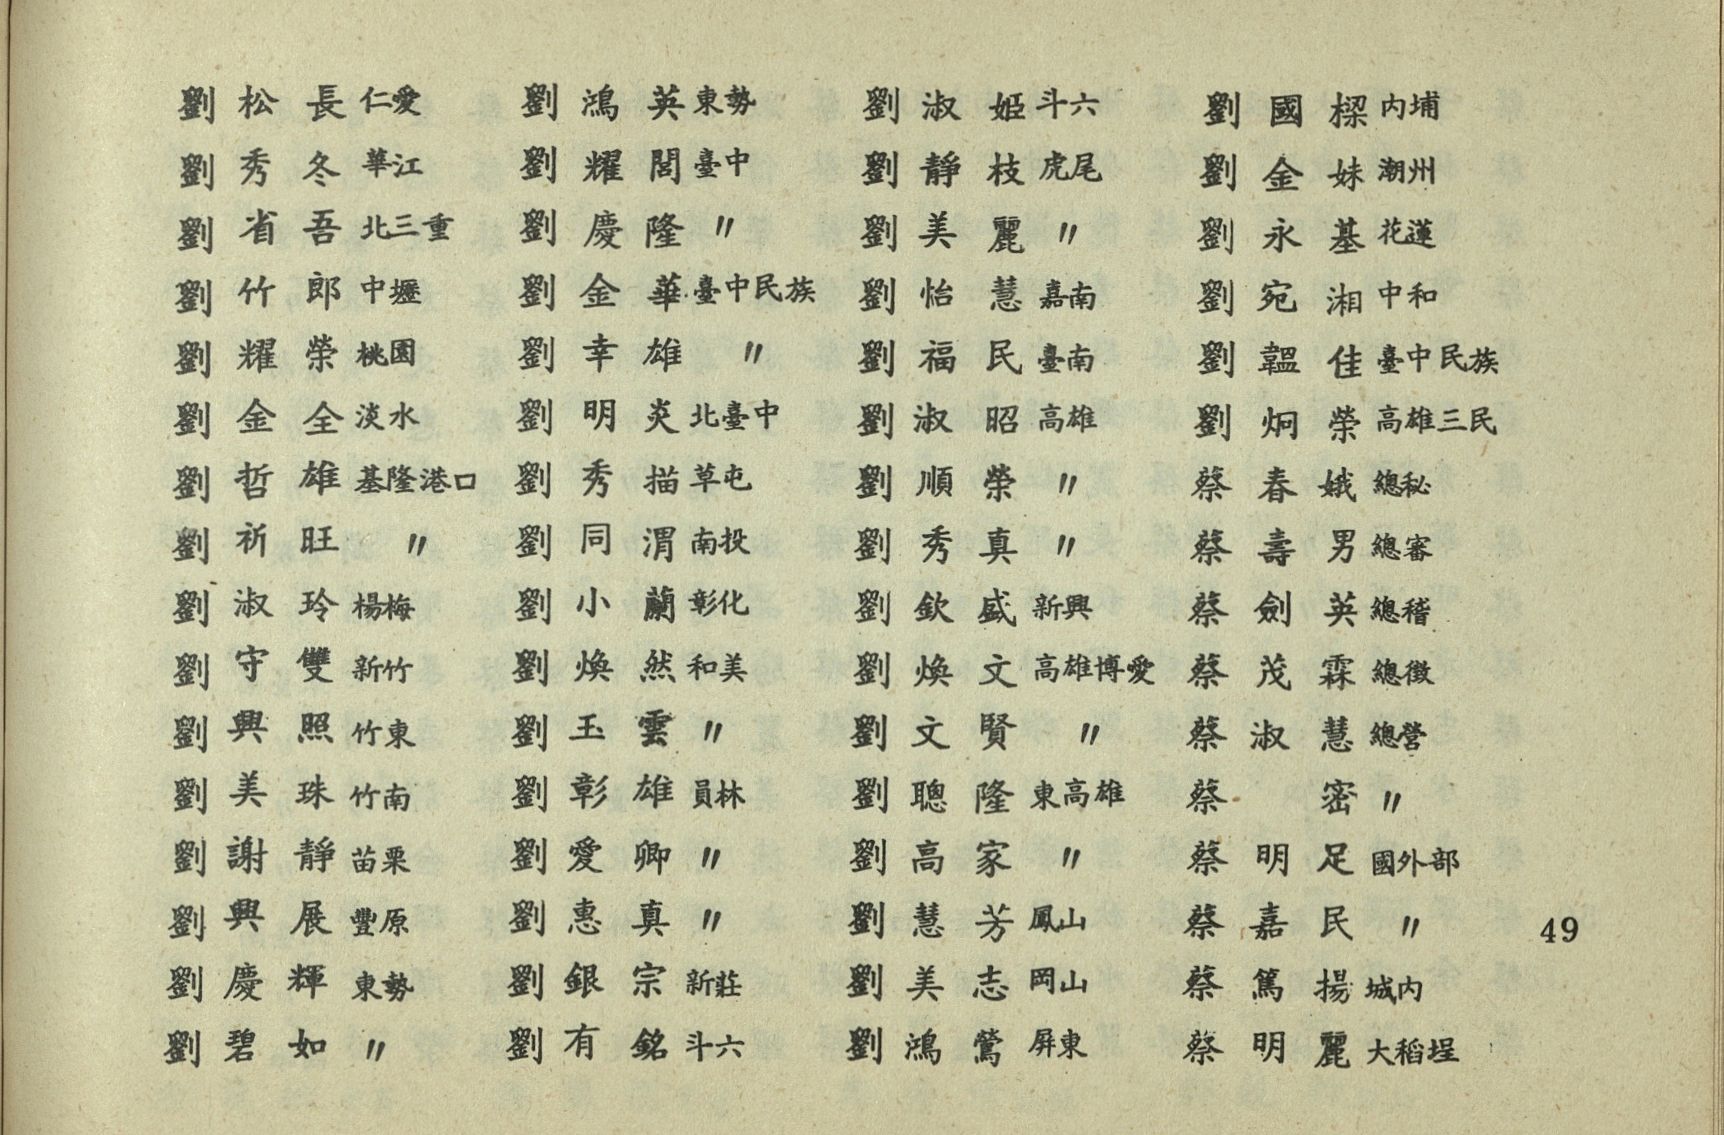 劉松長 仁愛
劉秀冬 華江
劉省吾 北三重
劉竹郎 中壢
劉耀榮 桃園
劉金全 淡水
劉哲雄 基隆港口
劉祈旺 〃
劉淑玲 楊梅
劉守雙 新竹
劉興照 竹東
劉美珠 竹南
劉謝靜 苗栗
劉興展 豐原
劉慶輝 東勢
劉碧如 〃
劉鴻英 東勢
劉耀閭 臺中
劉慶隆 〃
劉金華 臺中民族
劉幸雄 〃
劉明炎 北臺中
劉秀描 草屯
劉同渭 南投
劉小蘭 彰化
劉煥然 和美
劉玉雲 〃
劉彰雄 員林
劉愛卿 〃
劉惠真 〃
劉銀宗 新莊
劉有銘 斗六
劉淑姬 斗六
劉靜枝 虎尾
劉美麗 〃
劉怡慧 嘉南
劉福民 臺南
劉淑昭 高雄
劉順榮 〃
劉秀真 〃
劉欽盛 新興
劉煥文 高雄博愛
劉文賢 〃
劉聰隆 東高雄
劉高家 〃
劉慧芳 鳳山
劉美志 岡山
劉鴻鶯 屏東
劉國樑 內埔
劉金妹 潮州
劉永基 花蓮
劉宛湘 中和
劉韞佳 臺中民族
劉炯榮 高雄三民
蔡春娥 總秘
蔡壽男 總審
蔡劍英 總稽
蔡茂霖 總徵
蔡淑慧 總營
蔡密 〃
蔡明足 國外部
蔡嘉民 〃
蔡篤揚 城內
蔡明麗 大稻埕
49